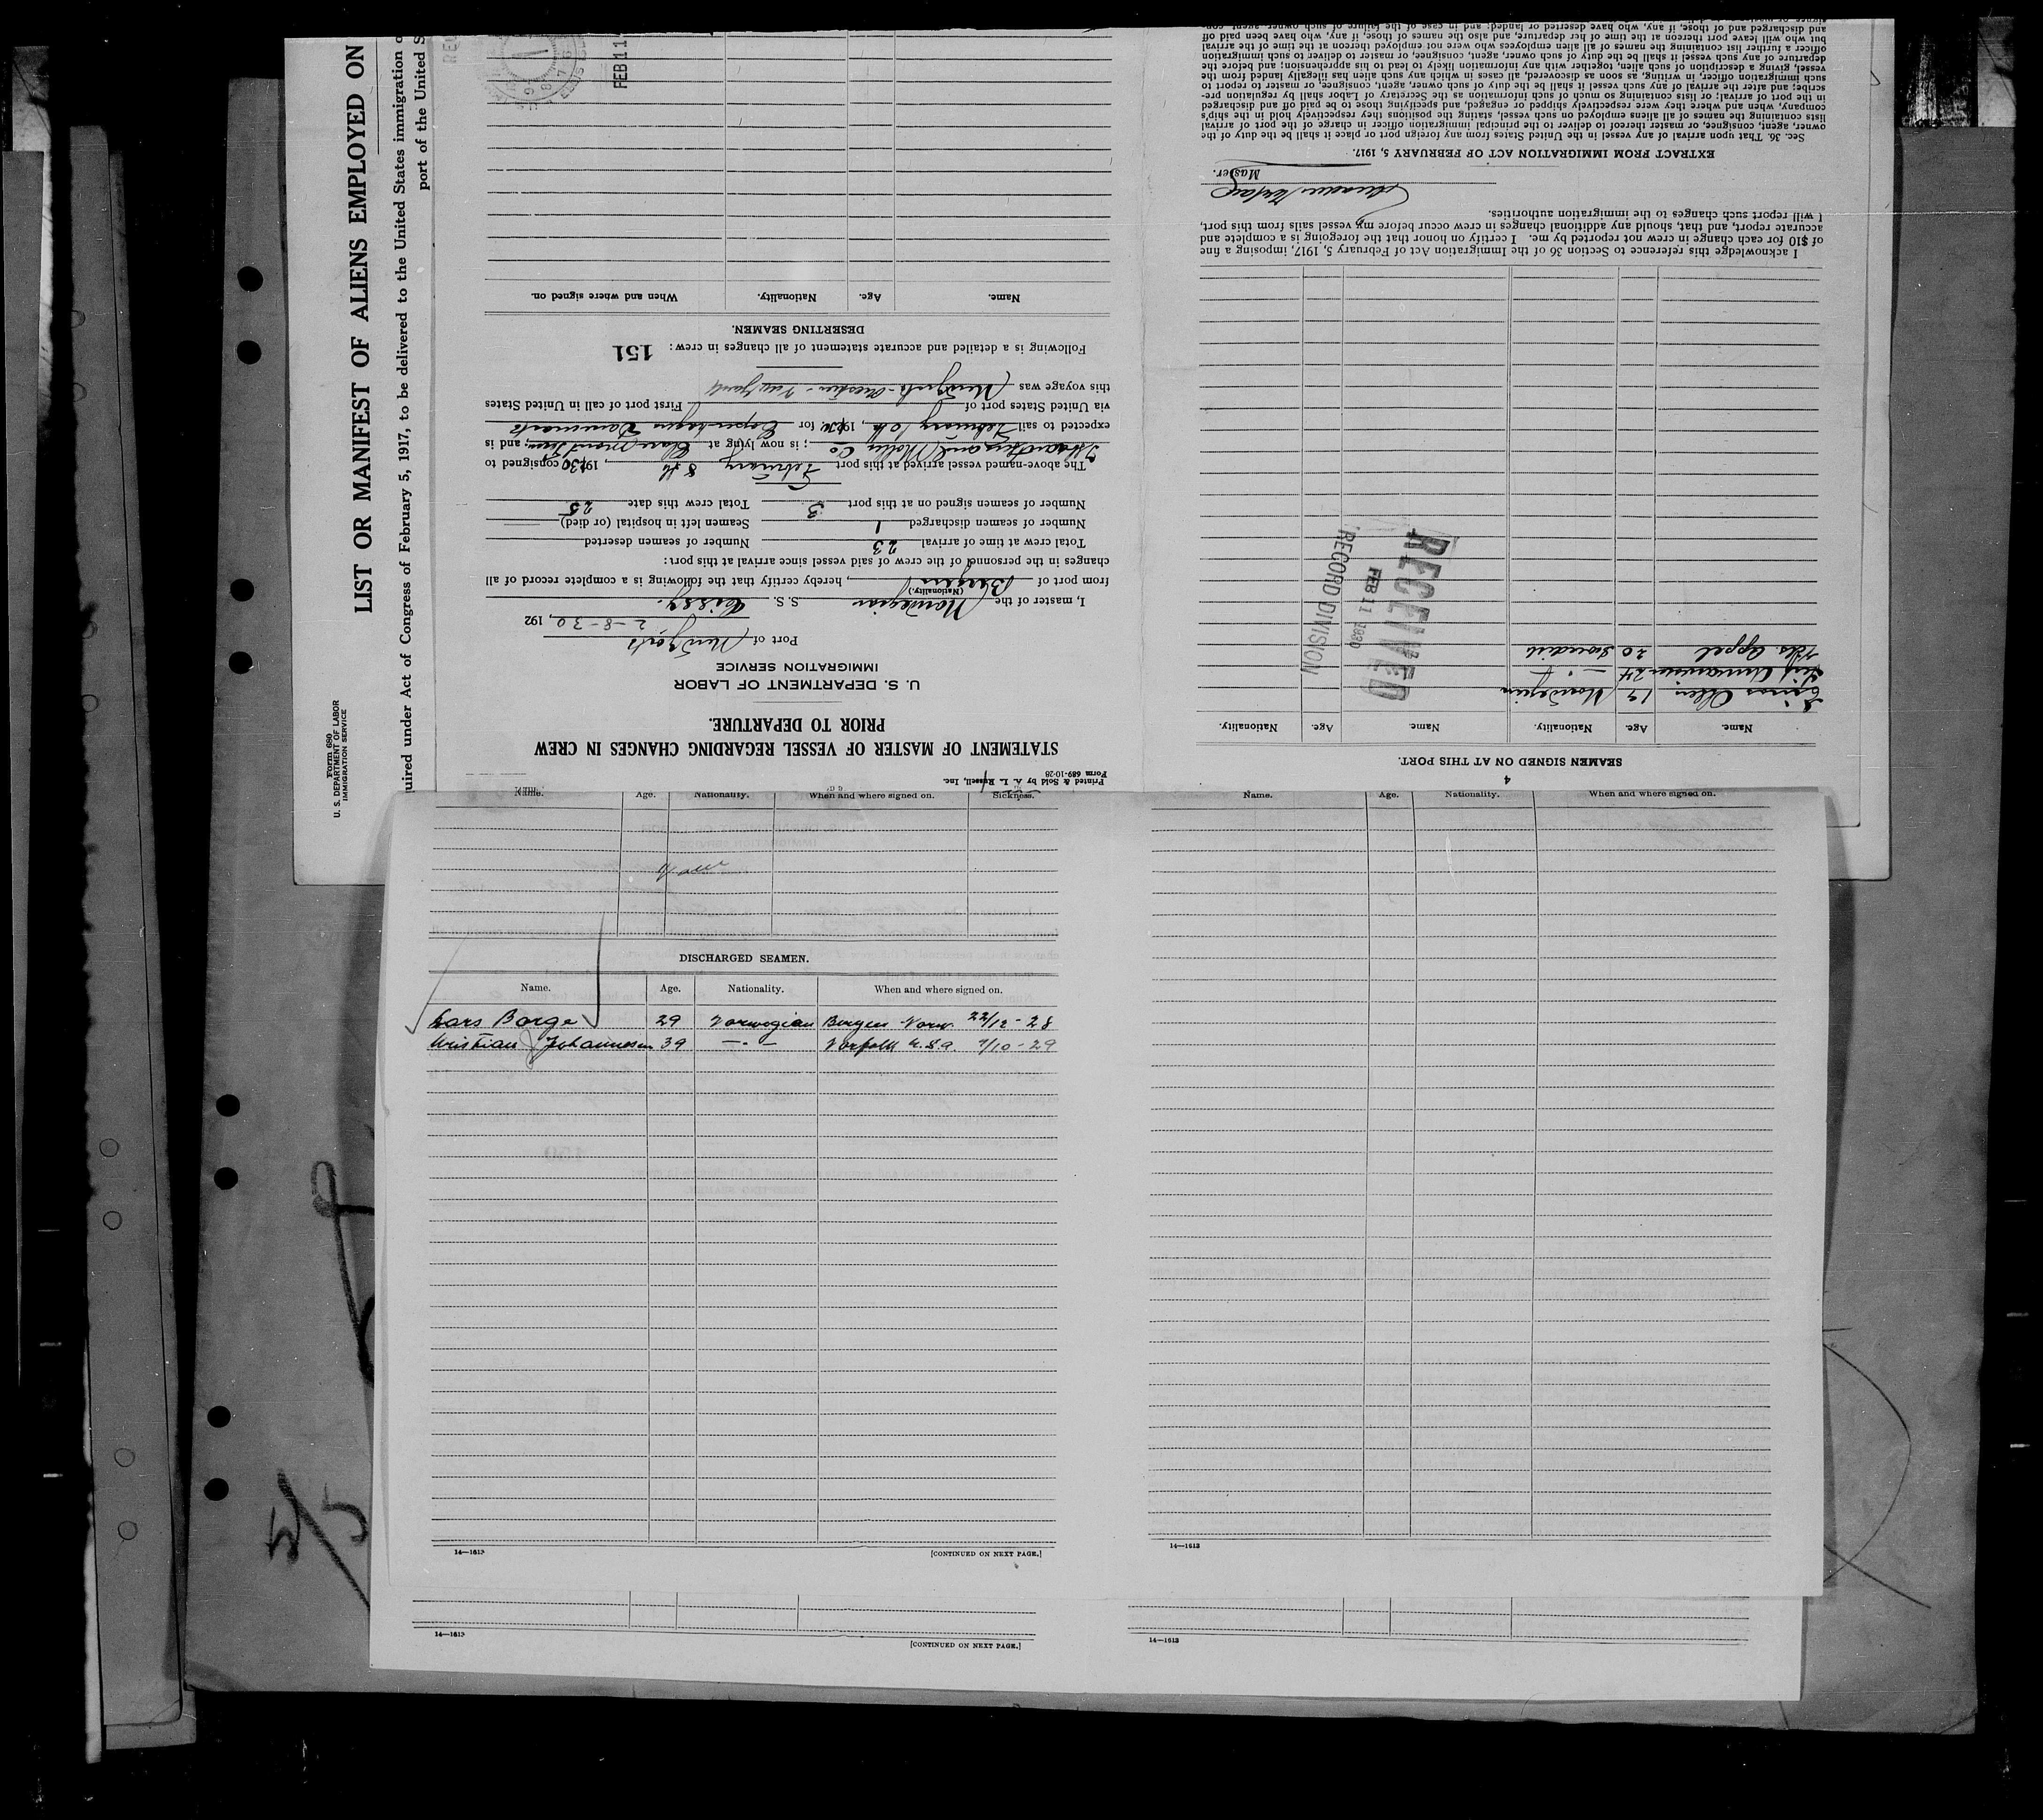 Form 680
U. S. DEPARTMENT OF LABOR
IMMIGRATION SERVICE
LIST OR MANIFEST OF ALIENS EMPLOYED ON
uired under Act of Congress of February 5, 1917, to be delivered to the United States immigration o
port of the United S
FEB 11
Printed & Sold by A. L. Russell, Inc.
Form 689-10-28
STATEMENT OF MASTER OF VESSEL REGARDING CHANGES IN CREW
PRIOR TO DEPARTURE.
U. S. DEPARTMENT OF LABOR
IMMIGRATION SERVICE
Port of New York
2-8-30, 192
I, master of the Norwegian S. S.
(Nationality.)
from port of Bergen, hereby certify that the following is a complete record of all
changes in the personnel of the crew of said vessel since arrival at this port:
Total crew at time of arrival 23 Number of seamen deserted
Number of seamen discharged 1 Seamen left in hospital (or died)
Number of seamen signed on at this port 3 Total crew this date 25
The above-named vessel arrived at this port February 8th, 1930 consigned to
; is now lying at, and is
expected to sail February 10th, 1930 for Copenhagen Danemark
via United States port of First port of call in United States
this voyage was
Following is a detailed and accurate statement of all changes in crew: 151
DESERTING SEAMEN.
Name. Age. Nationality. When and where signed on.
4
SEAMEN SIGNED ON AT THIS PORT.
Name. Age. Nationality. Name. Age. Nationality.
Olsen 19 Norwegian
24
Appel 20
RECEIVED
FEB 11 1930
RECORD DIVISION
I acknowledge this reference to Section 36 of the Immigration Act of February 5, 1917, imposing a fine
of $10 for each change in crew not reported by me. I certify on honor that the foregoing is a complete and
accurate report, and that, should any additional changes in crew occur before my vessel sails from this port,
I will report such changes to the immigration authorities.
Master.
EXTRACT FROM IMMIGRATION ACT OF FEBRUARY 5, 1917.
Sec. 36. That upon arrival of any vessel in the United States from any foreign port or place it shall be the duty of the
owner, agent, consignee, or master thereof to deliver to the principal immigration officer in charge of the port of arrival
lists containing the names of all aliens employed on such vessel, stating the positions they respectively hold in the ship's
company, when and where they were respectively shipped or engaged, and specifying those to be paid off and discharged
in the port of arrival; or lists containing so much of such information as the Secretary of Labor shall by regulation pre-
scribe; and after the arrival of any such vessel it shall be the duty of such owner, agent, consignee, or master to report to
such immigration officer, in writing, as soon as discovered, all cases in which any such alien has illegally landed from the
vessel, giving a description of such alien, together with any information likely to lead to his apprehension; and before the
departure of any such vessel it shall be the duty of such owner, agent, consignee, or master to deliver to such immigration
officer a further list containing the names of all alien employees who were not employed thereon at the time of the arrival
but who will leave port thereon at the time of her departure, and also the names of those, if any, who have been paid off
and discharged and of those, if any, who have deserted or landed; and in case of the failure of such owner, agent, con-
Name. Age. Nationality. When and where signed on. Sickness.
DISCHARGED SEAMEN.
Name. Age. Nationality. When and where signed on.
Lars Borge 29 Norwegian Bergen Norw. 22/12-28
Kristian J Johannesen 39 —·— Norfolk U.S.A. 7/10-29
14—1613 [CONTINUED ON NEXT PAGE.]
14—1613 [CONTINUED ON NEXT PAGE.]
Name. Age. Nationality. When and where signed on.
14—1613
14—1613
5/5